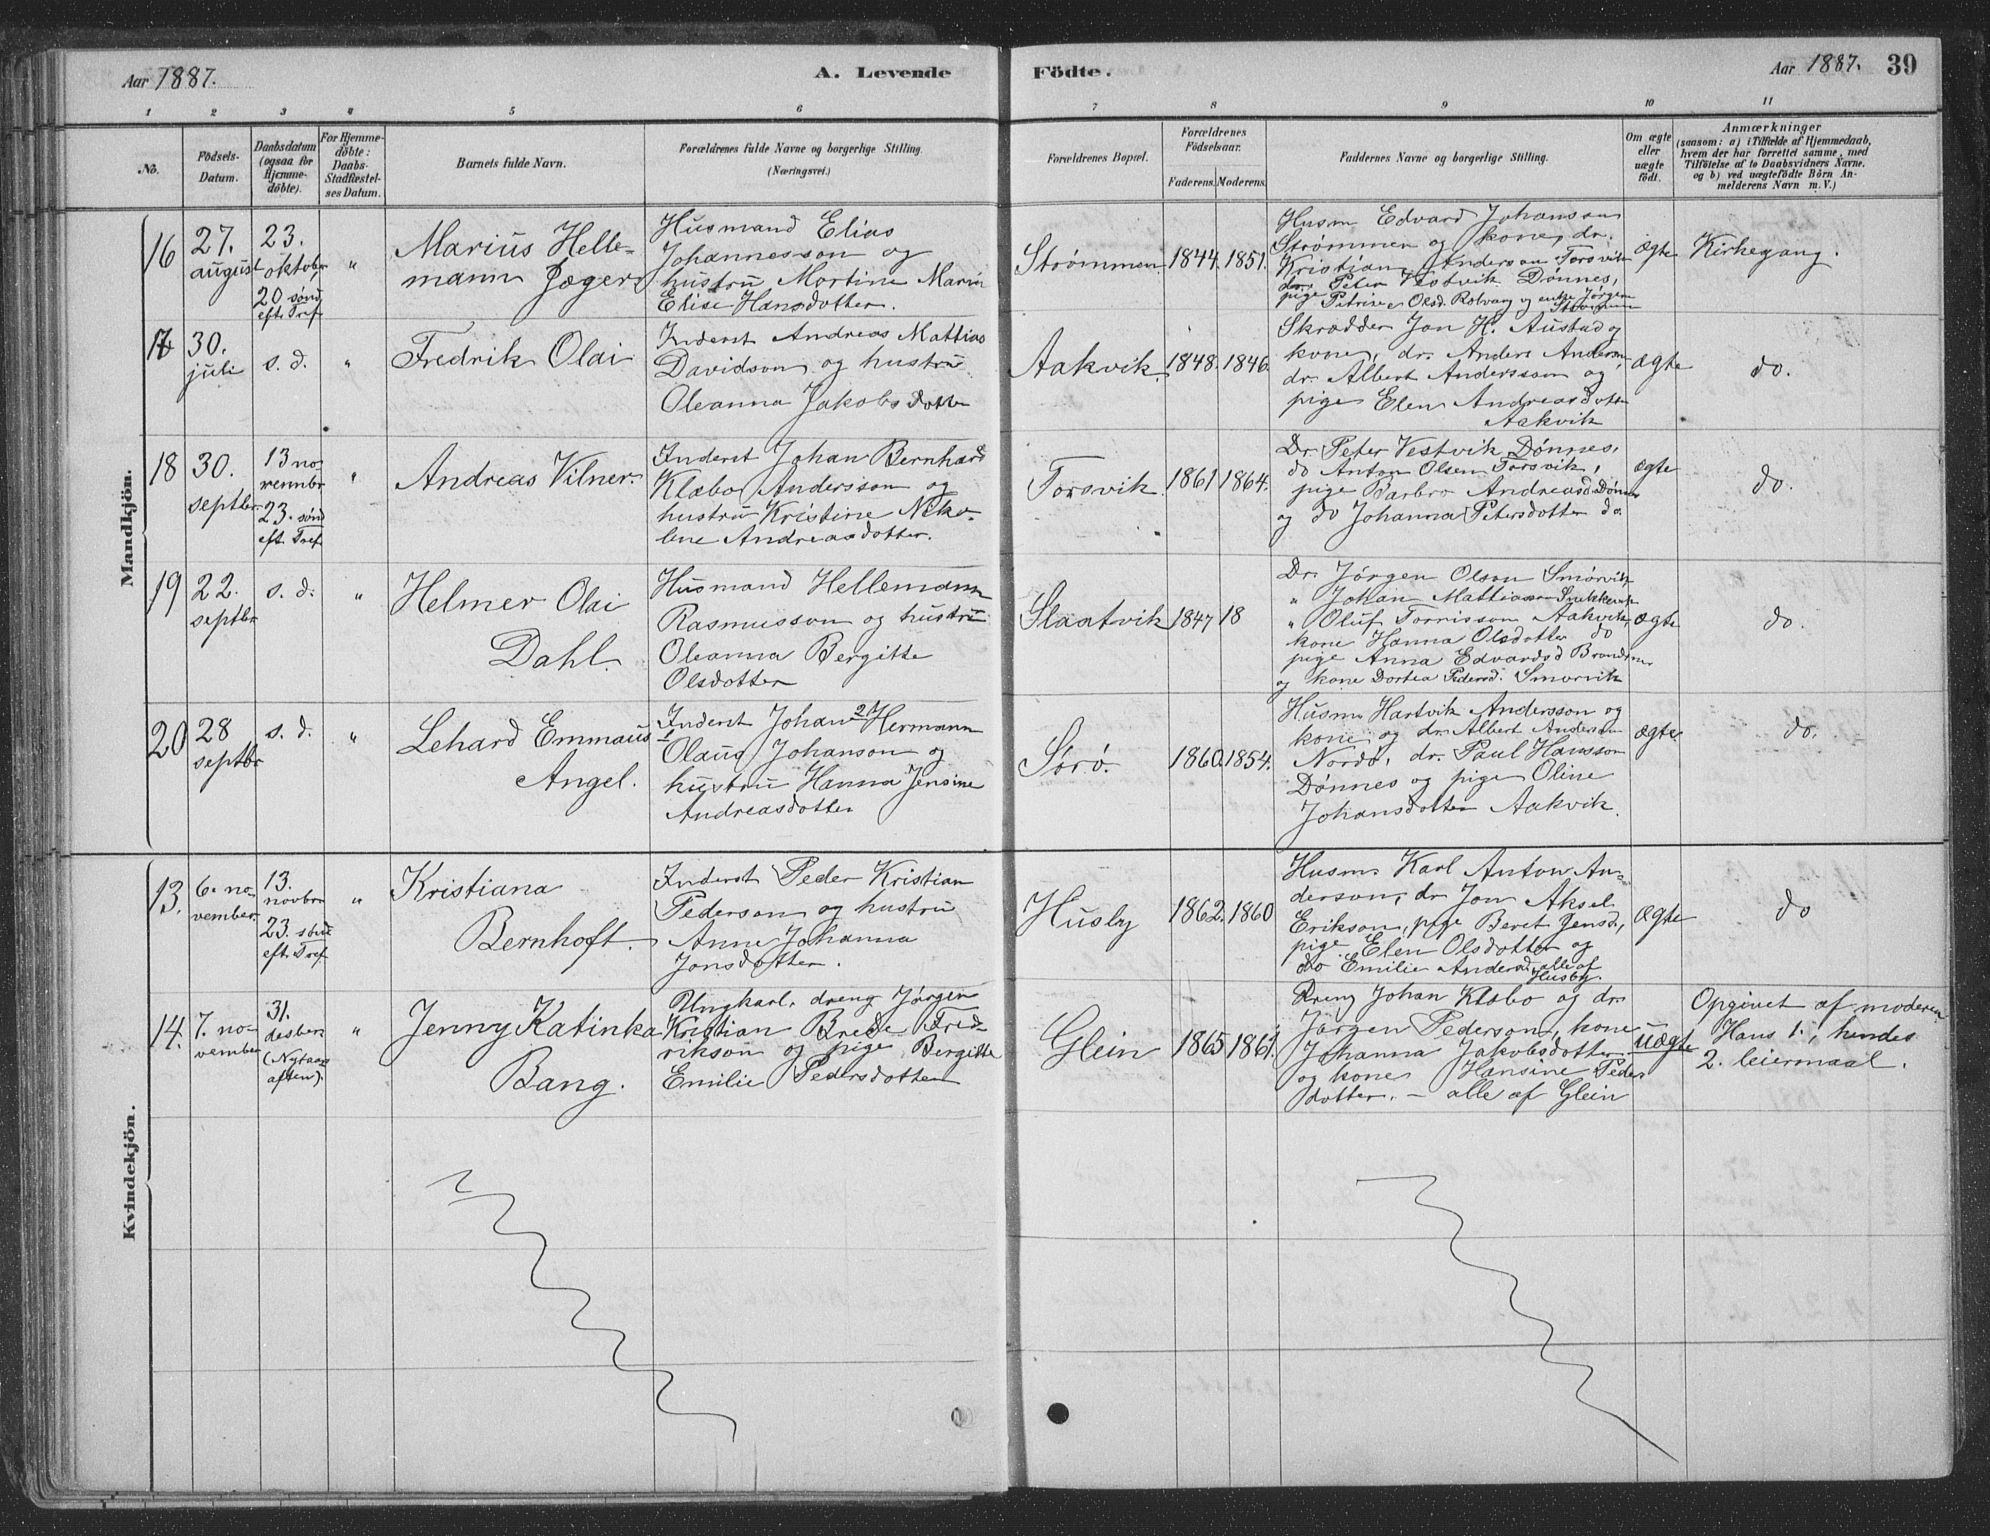 Aar 1887.
A. Levende
Födte.
Aar 1887. 39
1 2 3 4 5 6 7 8 9 10 11
No.
Födsels-
Datum.
Daabsdatum
(ogsaa for
Hjemme-
döbte).
For Hjemme-
döbte:
Daabs-
Stadfæstel-
ses Datum.
Barnets fulde Navn.
Forældrenes fulde Navne og borgerlige Stilling.
(Næringsvei.)
Forældrenes Bopæl.
Forældrenes
Födselsaar.
Faderens. Moderens.
Faddernes Navne og borgerlige Stilling.
Om ægte
eller
uægte
födt.
Anmærkninger
(saasom: a) i Tilfælde af Hjemmedaab,
hvem der har forrettet samme, med
Tilföielse af to Daabsvidners Navne,
og b) ved uægtefödte Börn An-
melderens Navn m. V.)
Mandkjön.
16
27.
august
23.
oktobr
20 sønd
eft. Tref
"
Marius Helle-
mann Jæger
Husmand Elias
Johannesson og
hustru Martine Maria
Elise Hansdotter.
Strømmen
1844. 1851.
Husm Edvard Johanson
Strømmen og kone, dr.
Kristian Anderson Torsvik
dr. Peter Vestvik Dønnes,
pige Petrine Olsd. Rølvaag og enke Jørgen
ægte
Kirkegang.
17
30.
juli
s. d.
"
Fredrik Olai
Inderst Andreas Mattias
Davidson og hustru
Oleanna Jakobsdotter
Aakvik.
1848. 1846.
Skrædder Jon H. Austad og
kone, dr. Anders Anderson
dr. Albert Andersson og
pige Elen Andreasdotter
Aakvik
ægte
do.
18
30.
septbr
13 no-
vembr
23. sønd
eft Tref
"
Andreas Vilner
Inderst Johan Bernhard
Klæbo Andersson og
hustru Kristine Niko-
line Andreasdotter.
Torsvik
1861 1864.
Dr Peter Vestvik Dønnes,
do Anton Olsen Torsvik,
pige Barbro Andreasd. Dønnes
og do Johanna Petersdotter do
ægte
do.
19
22.
septbr
s. d.
"
Helmer Olai
Dahl.
Husmand Hellemann
Rasmusson og hustru
Oleanna Bergitte
Olsdotter
Slaatvik
1847 18
Dr. Jørgen Olson Smørvik
" Johan Mattiasson Snekkevik
" Oluf Torrisson Aakvik,
kone Hanna Olsdotter do
pige Anna Edvardsd Brandmo
og kone Dortea Pedersd. Smørvik
ægte
do.
20
28
septbr
s. d.
"
Lehard Emmaus
Angel.
Inderst Johan Hermann
Olaus Johanson og
hustru Hanna Jensine
Andreasdotter
Sørø.
1860. 1854.
Husm. Hartvik Andersson og
kone og dr. Albert Anderson
Nordø, dr. Paul Hansson
Dønnes og pige Oline
Johansdotter Aakvik.
ægte
do.
Kvindekjön.
13.
6. no-
vember
13.
novbr
23. sønd
eft. Tref
"
Kristiana
Bernhoft.
Inderst Peder Kristian
Pederson og hustru
Anne Johanna
Jonsdotter.
Husby
1862. 1860
Husm. Karl Anton An-
derson, dr Jon Aksel
Erikson, pige Beret Jensd.,
pige Elen Olsdotter og
do Emilie Andersd, alle af
Husby.
ægte
do
14.
7. no-
vember
31.
desber
(Nytaars
aften).
"
Jenny Katinka
Bang.
Ungkarl, dreng Jørgen
Kristian Brede Fred-
rikson og pige Bergitte
Emilie Pedersdotter
Glein
1865 1861.
Dreng Johan Klæbo og dr.
Jørgen Pederson, kone
Johanna Jakobsdotter
og kone Hansine Peders
dotter. – alle af Glein
uægte
Opgivet af moderen
Hans 1., hendes
2. leiermaal.